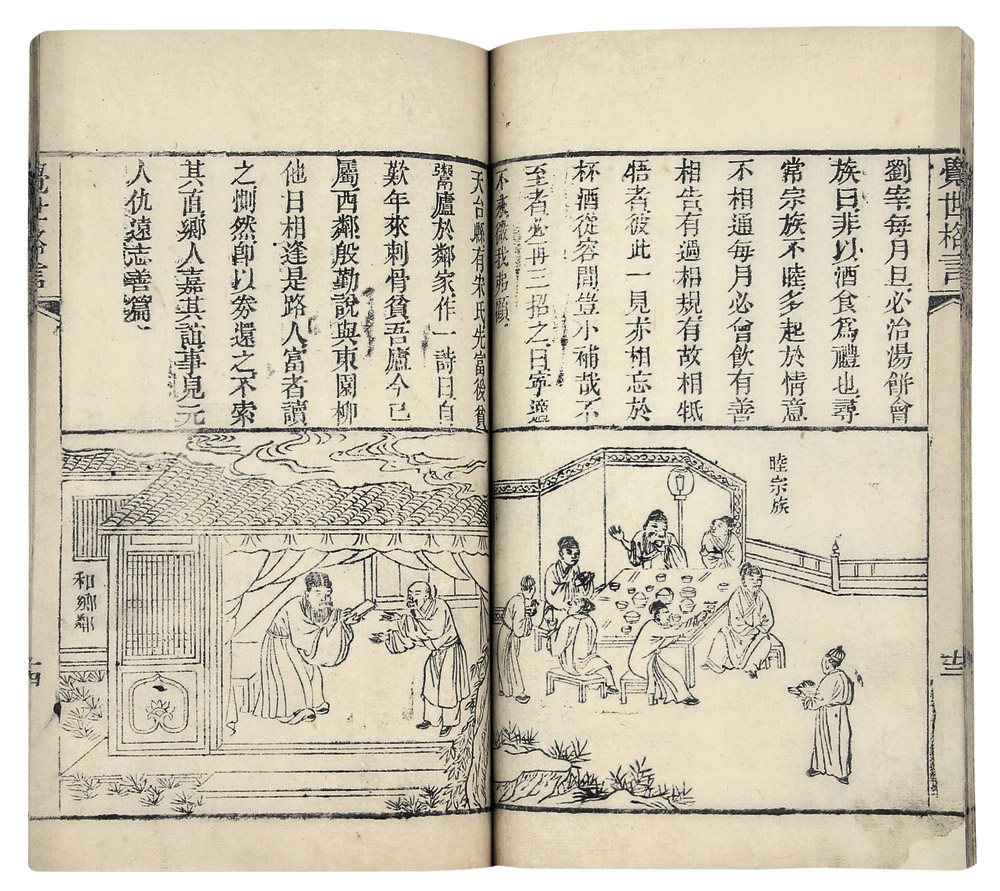 覺世格言
十三
劉宰每月旦必治湯餅會
族曰非以酒食爲禮也尋
常宗族不睦多起於情意
不相通每月必會飲有善
相告有過相規有故相牴
牾者彼此一見亦相忘於
杯酒從容間豈小補哉不
至者必再三招之曰寧適
不來微我弗顧
睦宗族
天台縣有朱氏先富後貧
鬻廬於鄰家作一詩曰自
歎年來刺骨貧吾廬今已
屬西鄰殷勤說與東園柳
他日相逢是路人富者讀
之惻然卽以劵還之不索
其直鄉人嘉其誼事見元
人仇遠志善篇
和鄉鄰
覺世格言
十四